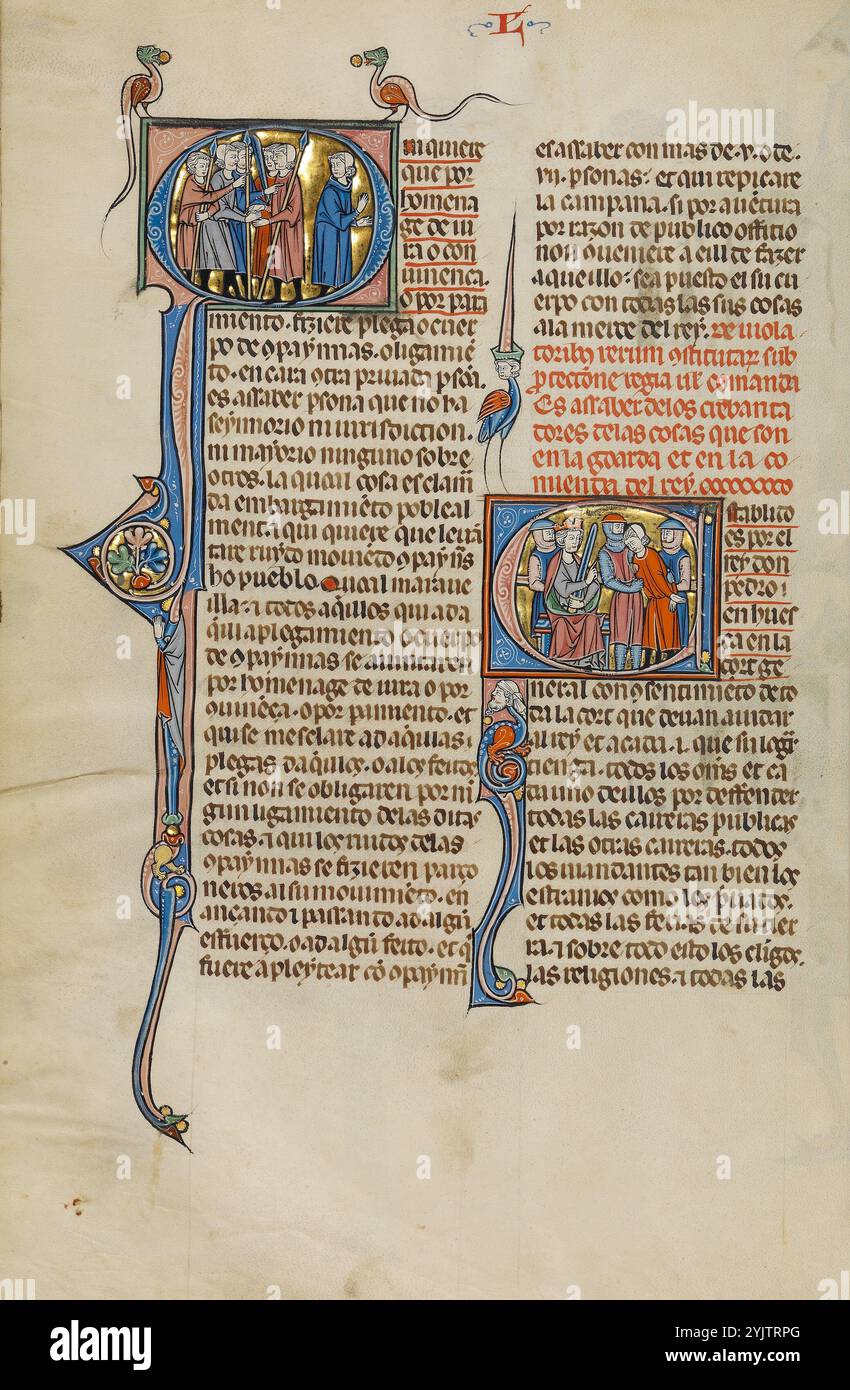 L
in quiere
que por
homena
ge de iu
ra o con
uinença.
o por para
miento. fiziere plega o cuer
po de ꝯpaynnas. o ligamiē
to. en cara ꝯtra priuada pſōa.
es assaber psona que no ha
seynnorio ni iurisdiction.
ni mayorio ninguno sobre
otros. la qual cosa es clam̄
da embargamiēto po leal
ment. i qui quiere que leuā
tare ruydo mouiēto ꝯpaynn̄s
ho pueblo. Qual maraue
illa. i todos aq̄llos qui a da
q̄ui aplegamiento o cuerpo
de ꝯpaynnas se aiuntaren
por homenage de iura o por
ꝯuinēça. o por paramiento. et
qui se mesclare ad aq̄llas i
plegas daq̄llos. o a los feitos
et si non se obligaren por nī
gun ligamiento de las ditas
cosas. i qui los ruidos de las
ꝯpaynnas se fizieren parço
neros al su mouimiēto. en
ançando i passando ad algū
esfuerço. o ad algū feito. et q̄
fuere a pleytear cō ꝯpaynn̄
es assaber con mas de .v. o de
.vii. psonas. et qui repicare
la campana. si por auētura
por razon de publico offitio
non ꝯueniere a eill de fazer
aqueillo. sea puesto el su cu
erpo con todas las sus cosas
a la merce del rey. De uiola
toribꝯ rerum ꝯstitutarꝝ sub
ꝓtectōne regia uel comanda
Es assaber de los crebanta
dores de las cosas que son
en la goarda et en la co
mienda del rey.
stablido
es por el
rey don
pedro i
en hues
ca en la
cort ge
neral con ꝯsentimiēto de to
da la cort que deuan aiudar
al rey et a cada .i. que su logr̄
tienga. todos los om̄s et ca
da uno deillos por deffender
todas las carreras publicas
et las otras carreras. todos
los mandantes tan bien los
estranios como los priuados.
et todas las fedas de su tier
ra. i sobre todo esto los clīgos.
las religiones. i todas las
alamy
Image ID: 2YJTRPG
www.alamy.com